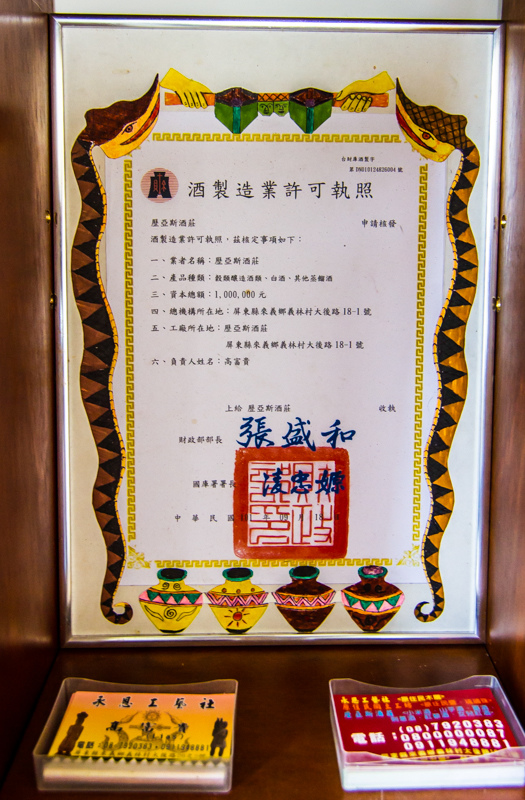 台財庫酒製字
第 DN010124626004 號
酒製造業許可執照
歷亞斯酒莊 申請核發
酒製造業許可執照,茲核定事項如下:
一、業者名稱:歷亞斯酒莊
二、產品種類:穀類釀造酒類、白酒、其他蒸餾酒
三、資本總額:1,000,000元
四、總機構所在地:屏東縣來義鄉義林村大後路18-1號
五、工廠所在地:歷亞斯酒莊
屏東縣來義鄉義林村大後路18-1號
六、負責人姓名:高富貴
上給 歷亞斯酒莊 收執
財政部部長 張盛和
國庫署署長 凌忠嫄
中華民國 年 月 日
永恩工藝社
永恩工藝社
電話:(08)7920383